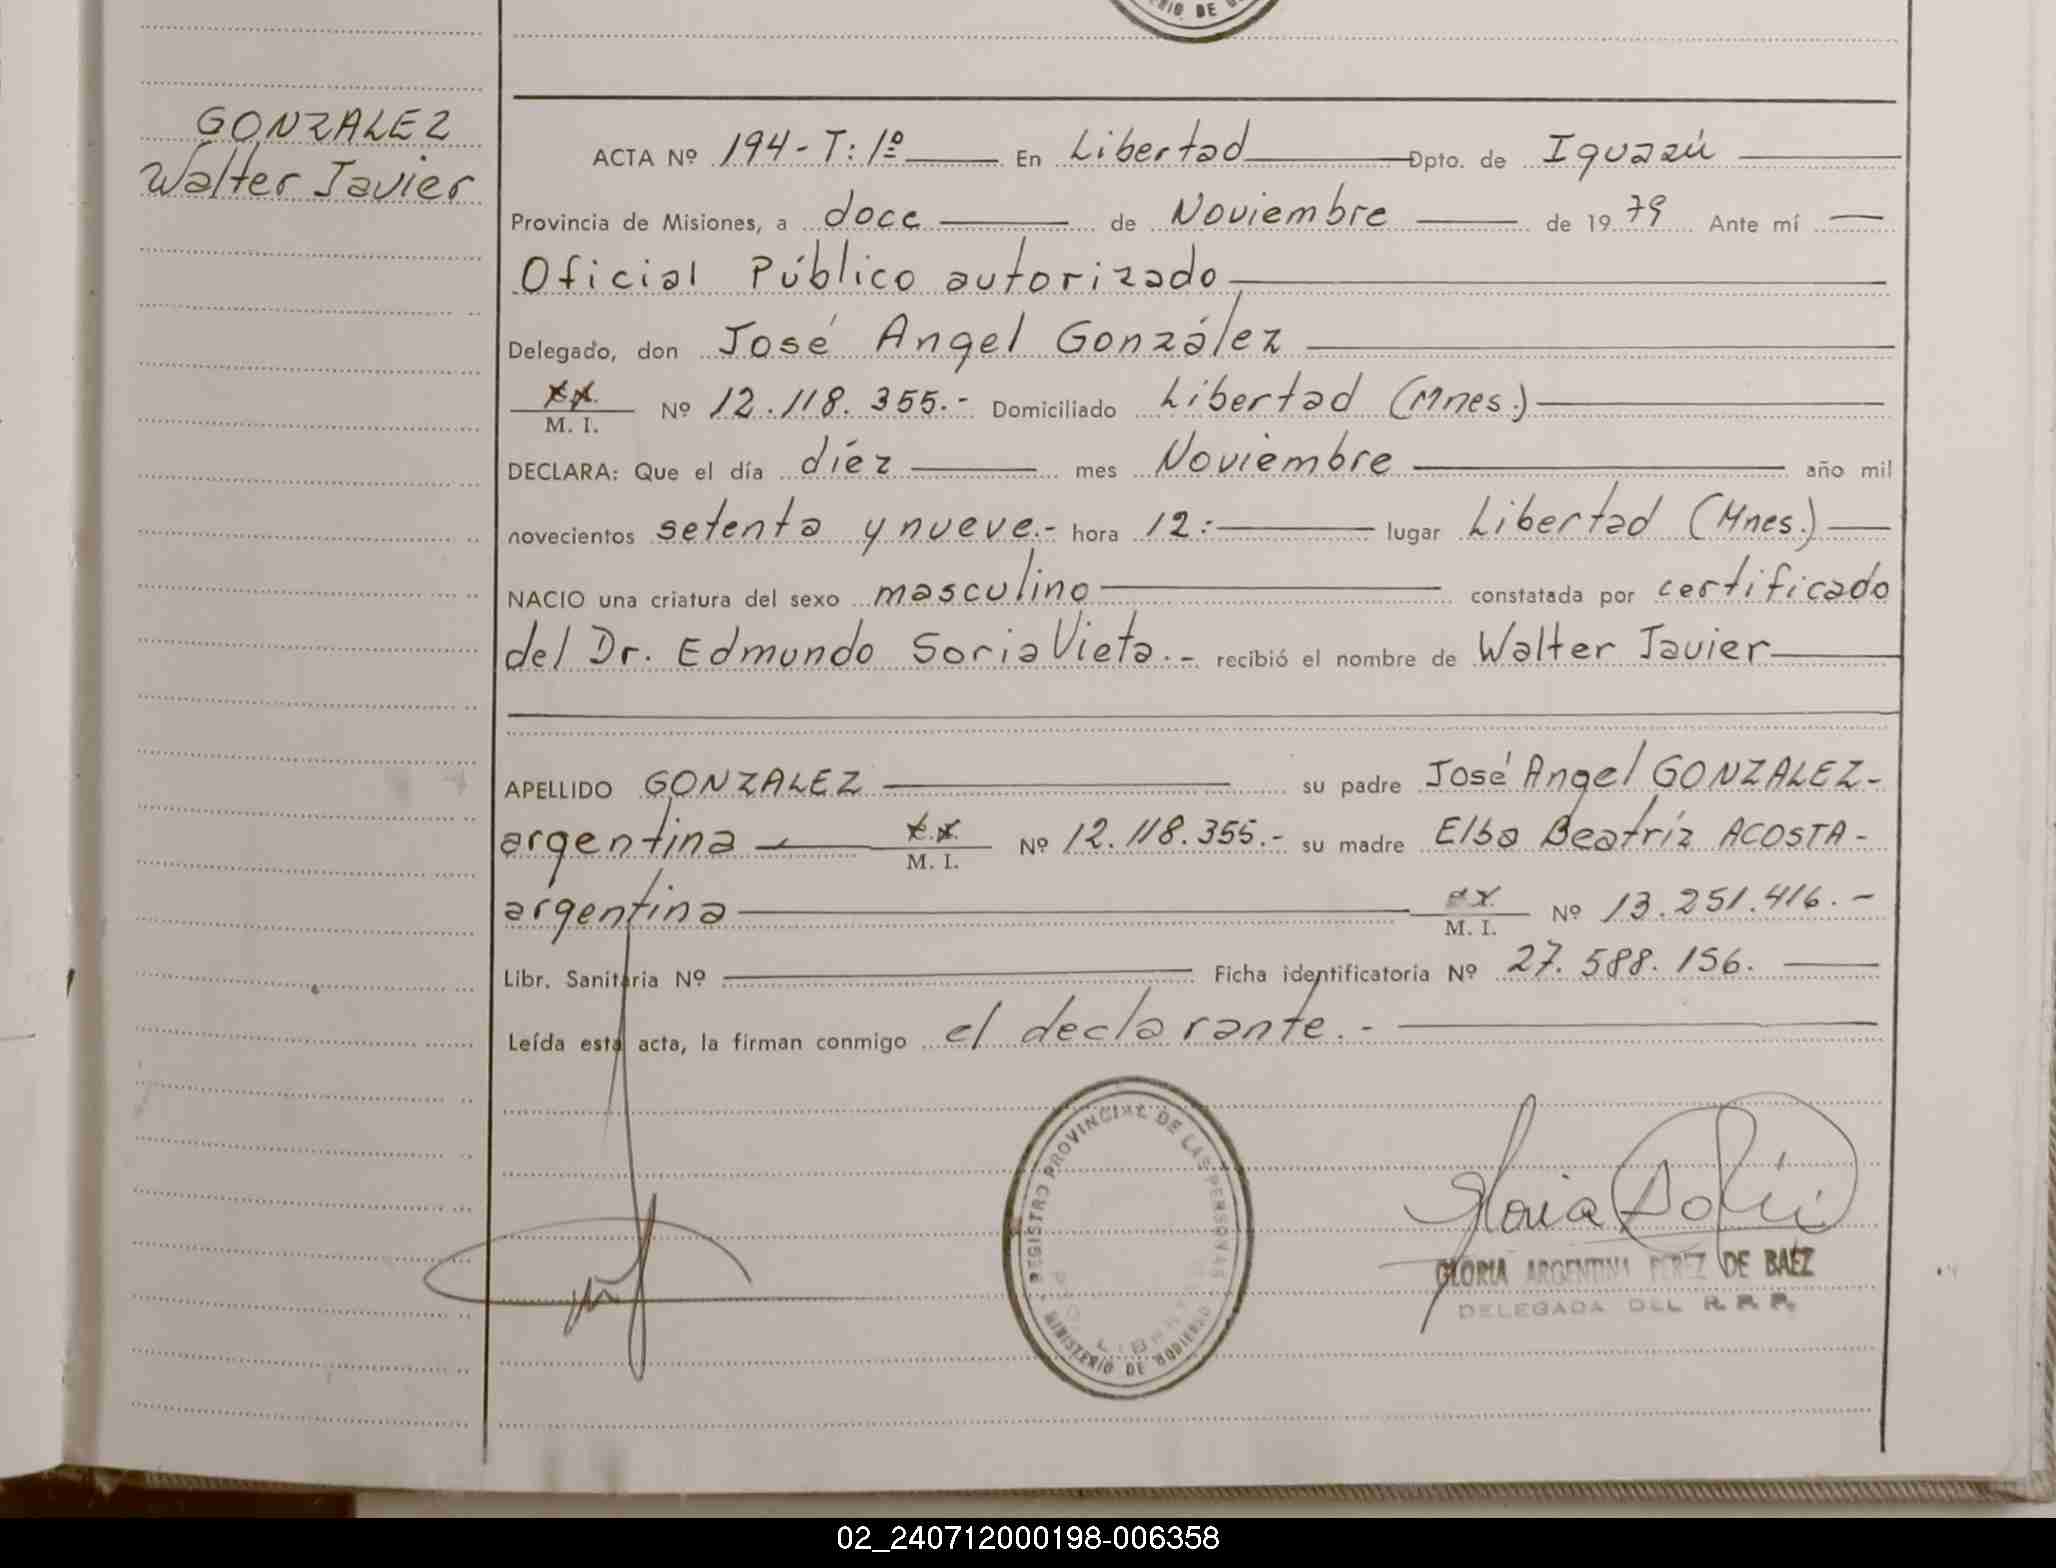 GONZALEZ
Walter Javier
ACTA Nº 194-T: 1º En Libertad Dpto. de Iguazú
Provincia de Misiones, a doce de Noviembre de 1979 Ante mí
Oficial Público autorizado
Delegado, don José Angel González
M. I. Nº 12.118.355.- Domiciliado Libertad (Mnes.)
DECLARA: Que el día diéz mes Noviembre año mil
novecientos setenta y nueve.- hora 12:- lugar Libertad (Mnes.)
NACIO una criatura del sexo masculino constatada por certificado
del Dr. Edmundo Soria Vieta.- recibió el nombre de Walter Javier
APELLIDO GONZALEZ su padre José Angel GONZALEZ-
argentina M. I. Nº 12.118.355.- su madre Elba Beatríz ACOSTA-
argentina M. I. Nº 13.251.416.-
Libr. Sanitaria Nº Ficha identificatoria Nº 27.588.156.
Leída esta acta, la firman conmigo el declarante.-
REGISTRO PROVINCIAL DE LAS PERSONAS
MINISTERIO DE GOBIERNO
Gloria
GLORIA ARGENTINA PEREZ DE BAEZ
DELEGADA DEL R. P. P.
02_240712000198-006358